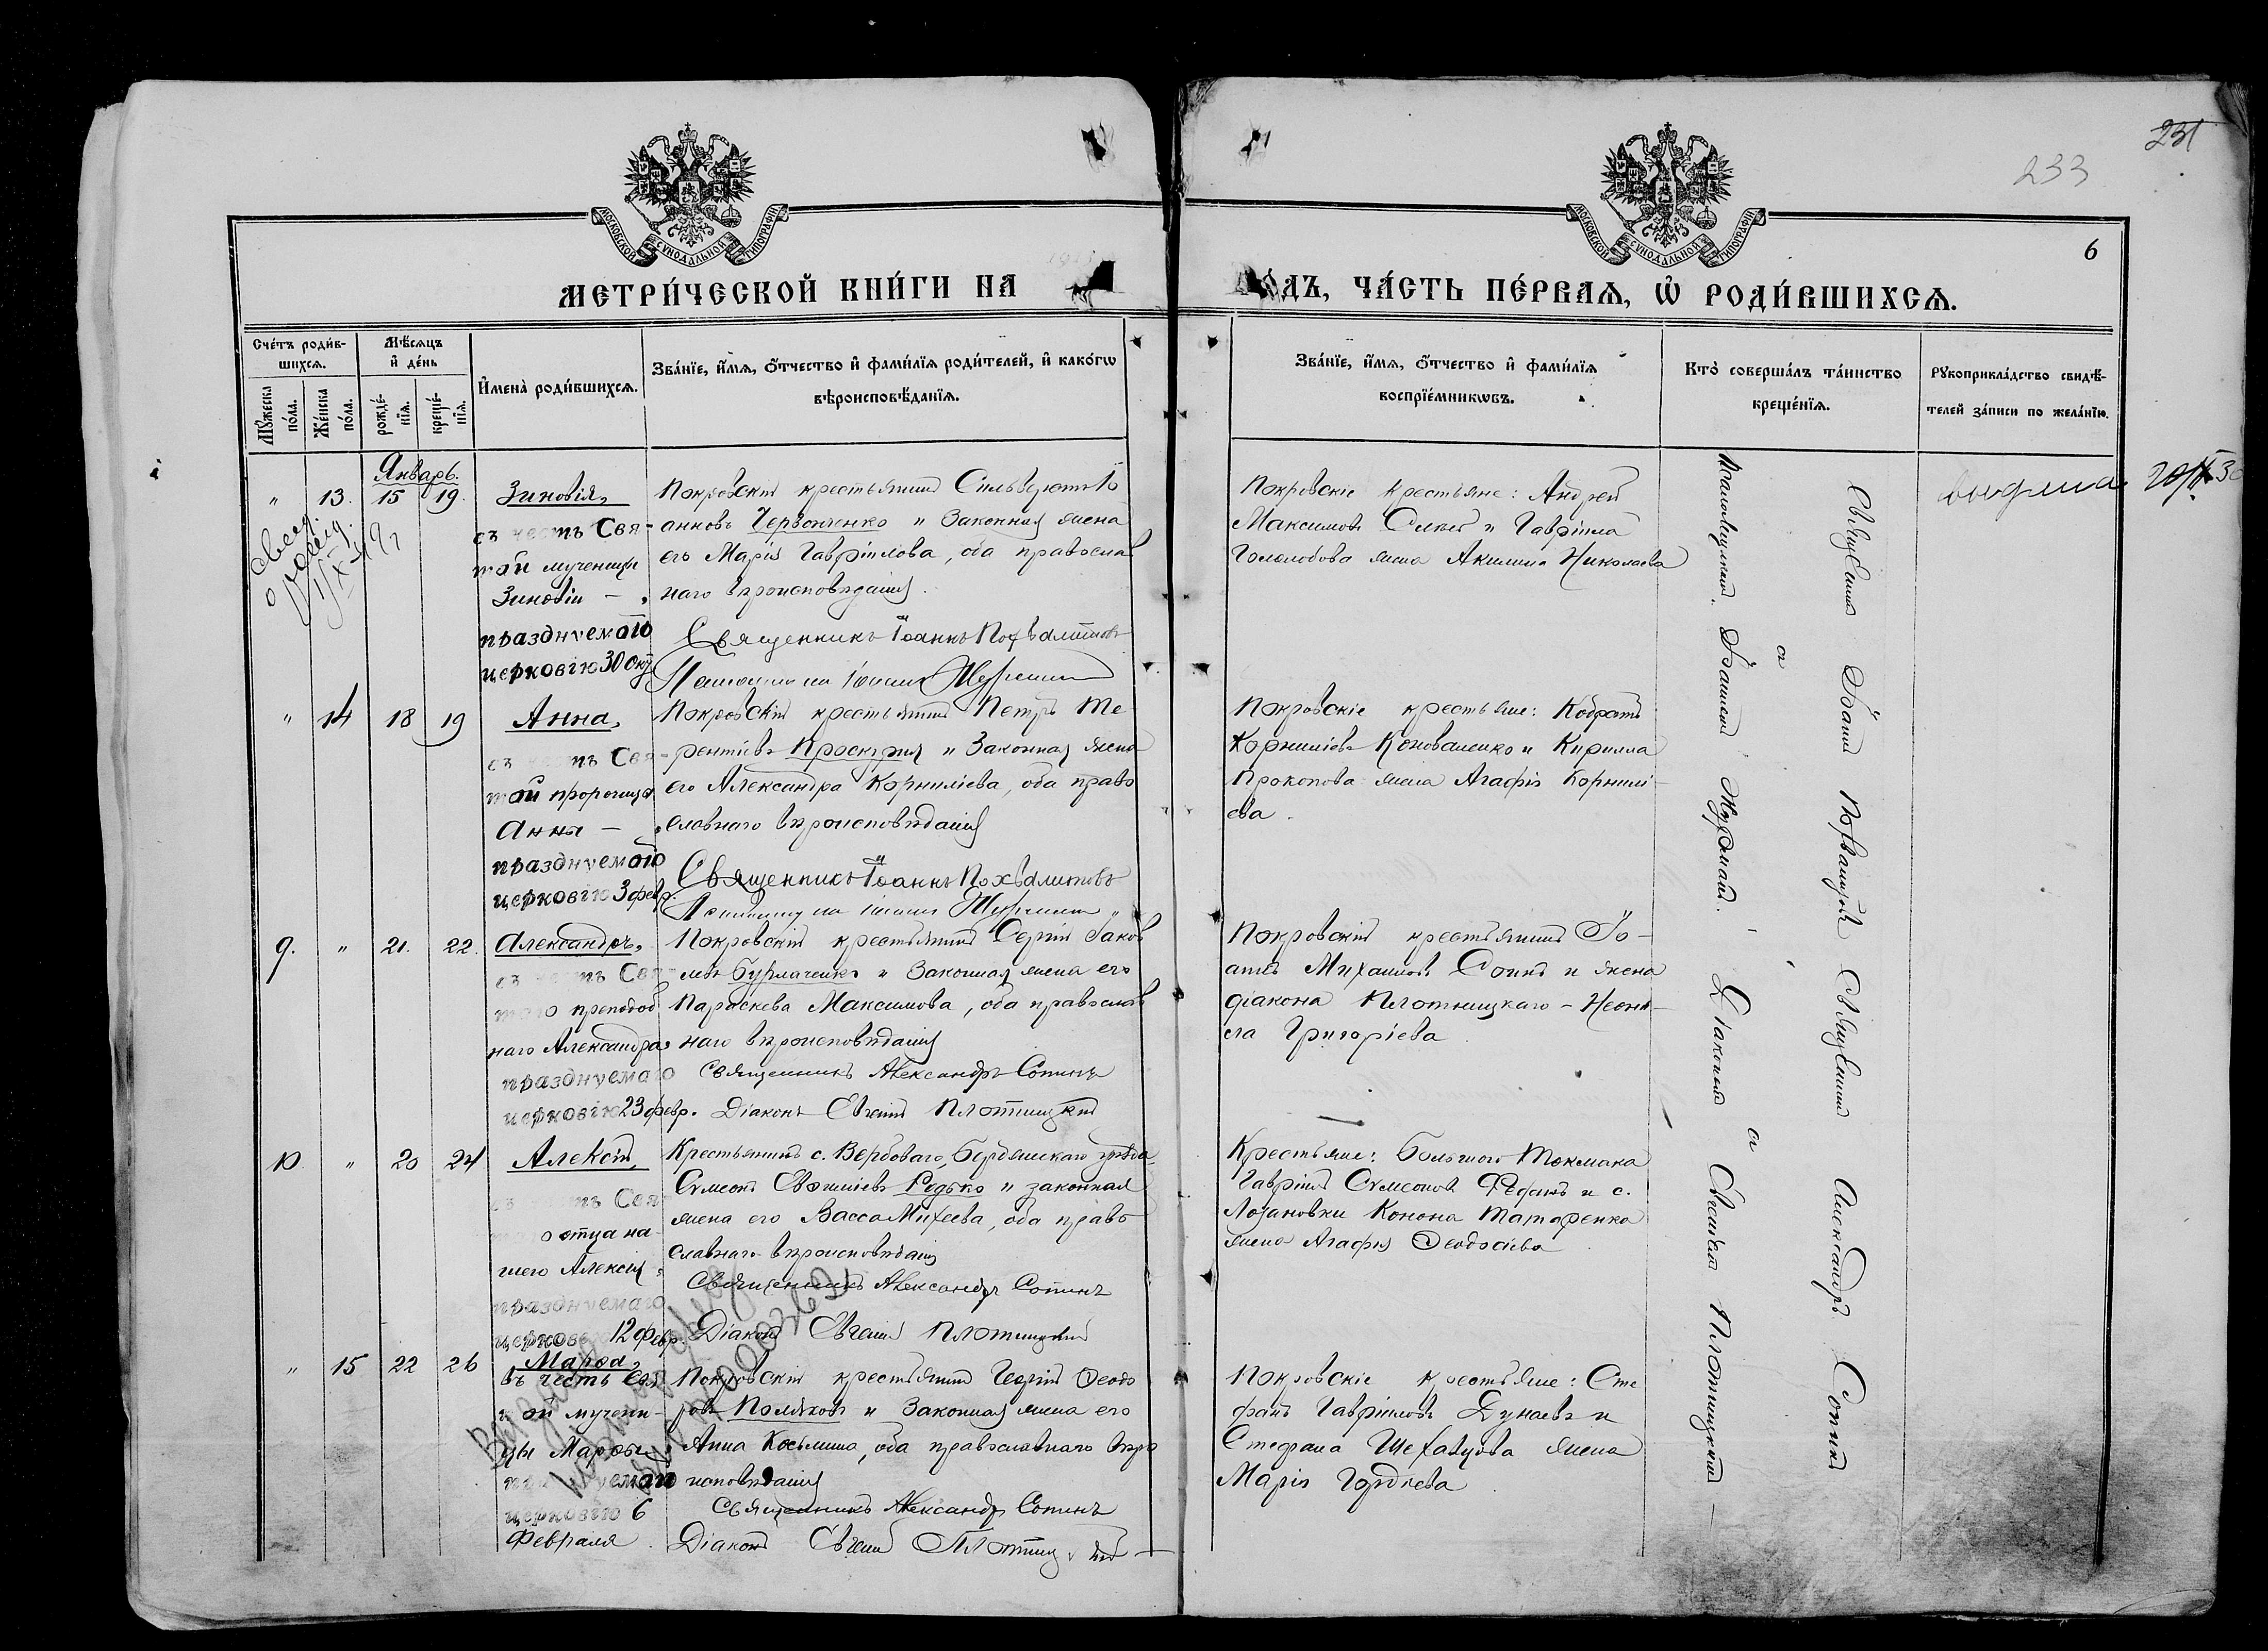 231
233
6
МОСКОВСКОЙ СѴНОДАЛЬНОЙ ТИПОГРАФІИ
МОСКОВСКОЙ СѴНОДАЛЬНОЙ ТИПОГРАФІИ
МЕТРИ́ЧЕСКОЙ КНИ́ГИ НА
ГО́ДЪ, ЧА́СТЬ ПЕ́РВАѦ, Ѡ҆ РОДИ́ВШИХСѦ.
Сче́тъ роди́в-
шихсѧ.
Мꙋ́жеска по́ла.
Же́нска по́ла.
Мѣ́сѧцъ
и҆ де́нь
рожде́-
нїѧ.
креще́-
нїѧ.
И҆мена̀ роди́вшихсѧ.
Зва́нїе, и҆́мѧ, ѻ҆́тчество и҆ фами́лїѧ роди́телей, и҆ како́гѡ
вѣроисповѣ́данїѧ.
Зва́нїе, и҆́мѧ, ѻ҆́тчество и҆ фами́лїѧ
воспрїе́мникѡвъ.
Кто̀ соверша́лъ та́инство
креще́нїѧ.
Рꙋкоприкла́дство свидѣ́-
телей за́писи по жела́нїю.
Январь.
" 13. 15 19.
Зиновія,
въ честь Свя-
той мученицы
Зиновіи —
празднуемаго
церковію 30 Окт.
Покровскій крестьянинъ Сильвестръ Іо
анновъ Червонченко и законная жена
его Марія Гавріилова, оба православ
наго вѣроисповѣданія.
Священникъ Іоаннъ Похвалитовъ
Покровскіе крестьяне: Андрей
Максимовъ и Гавріила
Гололобова жена Акилина Николаева
" 14 18 19
Анна,
въ честь Свя-
той пророчицы
Анны —
празднуемаго
церковію 3 февр.
Покровскій крестьянинъ Петръ Те
рентіевъ Проскурня и законная жена
его Александра Корниліева, оба право
славнаго вѣроисповѣданія
Священникъ Іоаннъ Похвалитовъ
Покровскіе крестьяне: Кодратъ
Корниліевъ Коноваленко и Кирилла
Прокопова жена Агафія Корнилі-
ева.
9. " 21. 22.
Александръ,
въ честь Свя-
того преподоб
наго Александра
празднуемаго
церковію 23 февр.
Покровскій крестьянинъ Сергій Іаков
левъ Бурлаченко и законная жена его
Параскева Максимова, оба православ
наго вѣроисповѣданія
Священникъ Александръ Сопинъ
Діаконъ Евгеній Плотницкій
Покровскій крестьянинъ Іо-
аннъ Михаиловъ и жена
діакона Плотницкаго — Неони-
ла Григоріева
10 " 20 24
Алексій,
въ честь Свя
того отца на
шего Алексія
празднуемаго
церковію 12 февр.
Крестьянинъ с. Вербоваго, Бердянскаго уѣзда
Сѵмеонъ Редько и законная
жена его Васса Михеева, оба право
славнаго вѣроисповѣданія
Священникъ Александръ Сопинъ
Діаконъ Евгеній Плотницкій
Крестьяне: Большого Токмака
Гавріилъ Сѵмеоновъ и с.
Лозановки Конона Татаренка
жена Агафія Ѳеодосіева
" 15 22 26
Марѳа,
въ честь Свя
той мучени-
цы Марѳы
празднуемаго
церковію 6
Февраля
Покровскій крестьянинъ Георгій Ѳеодо
ровъ Поляковъ и законная жена его
Анна Косьмина, оба православнаго вѣро
исповѣданія
Священникъ Александръ Сопинъ
Діаконъ Евгеній Плотницкій
Покровскіе крестьяне: Сте
фанъ Гавріиловъ Дунаевъ и
Стефана Шехавцова жена
Марія Гордѣева
Священникъ Іоаннъ Похвалитовъ Священникъ Александръ Сопинъ
Діаконъ Евгеній Плотницкій —